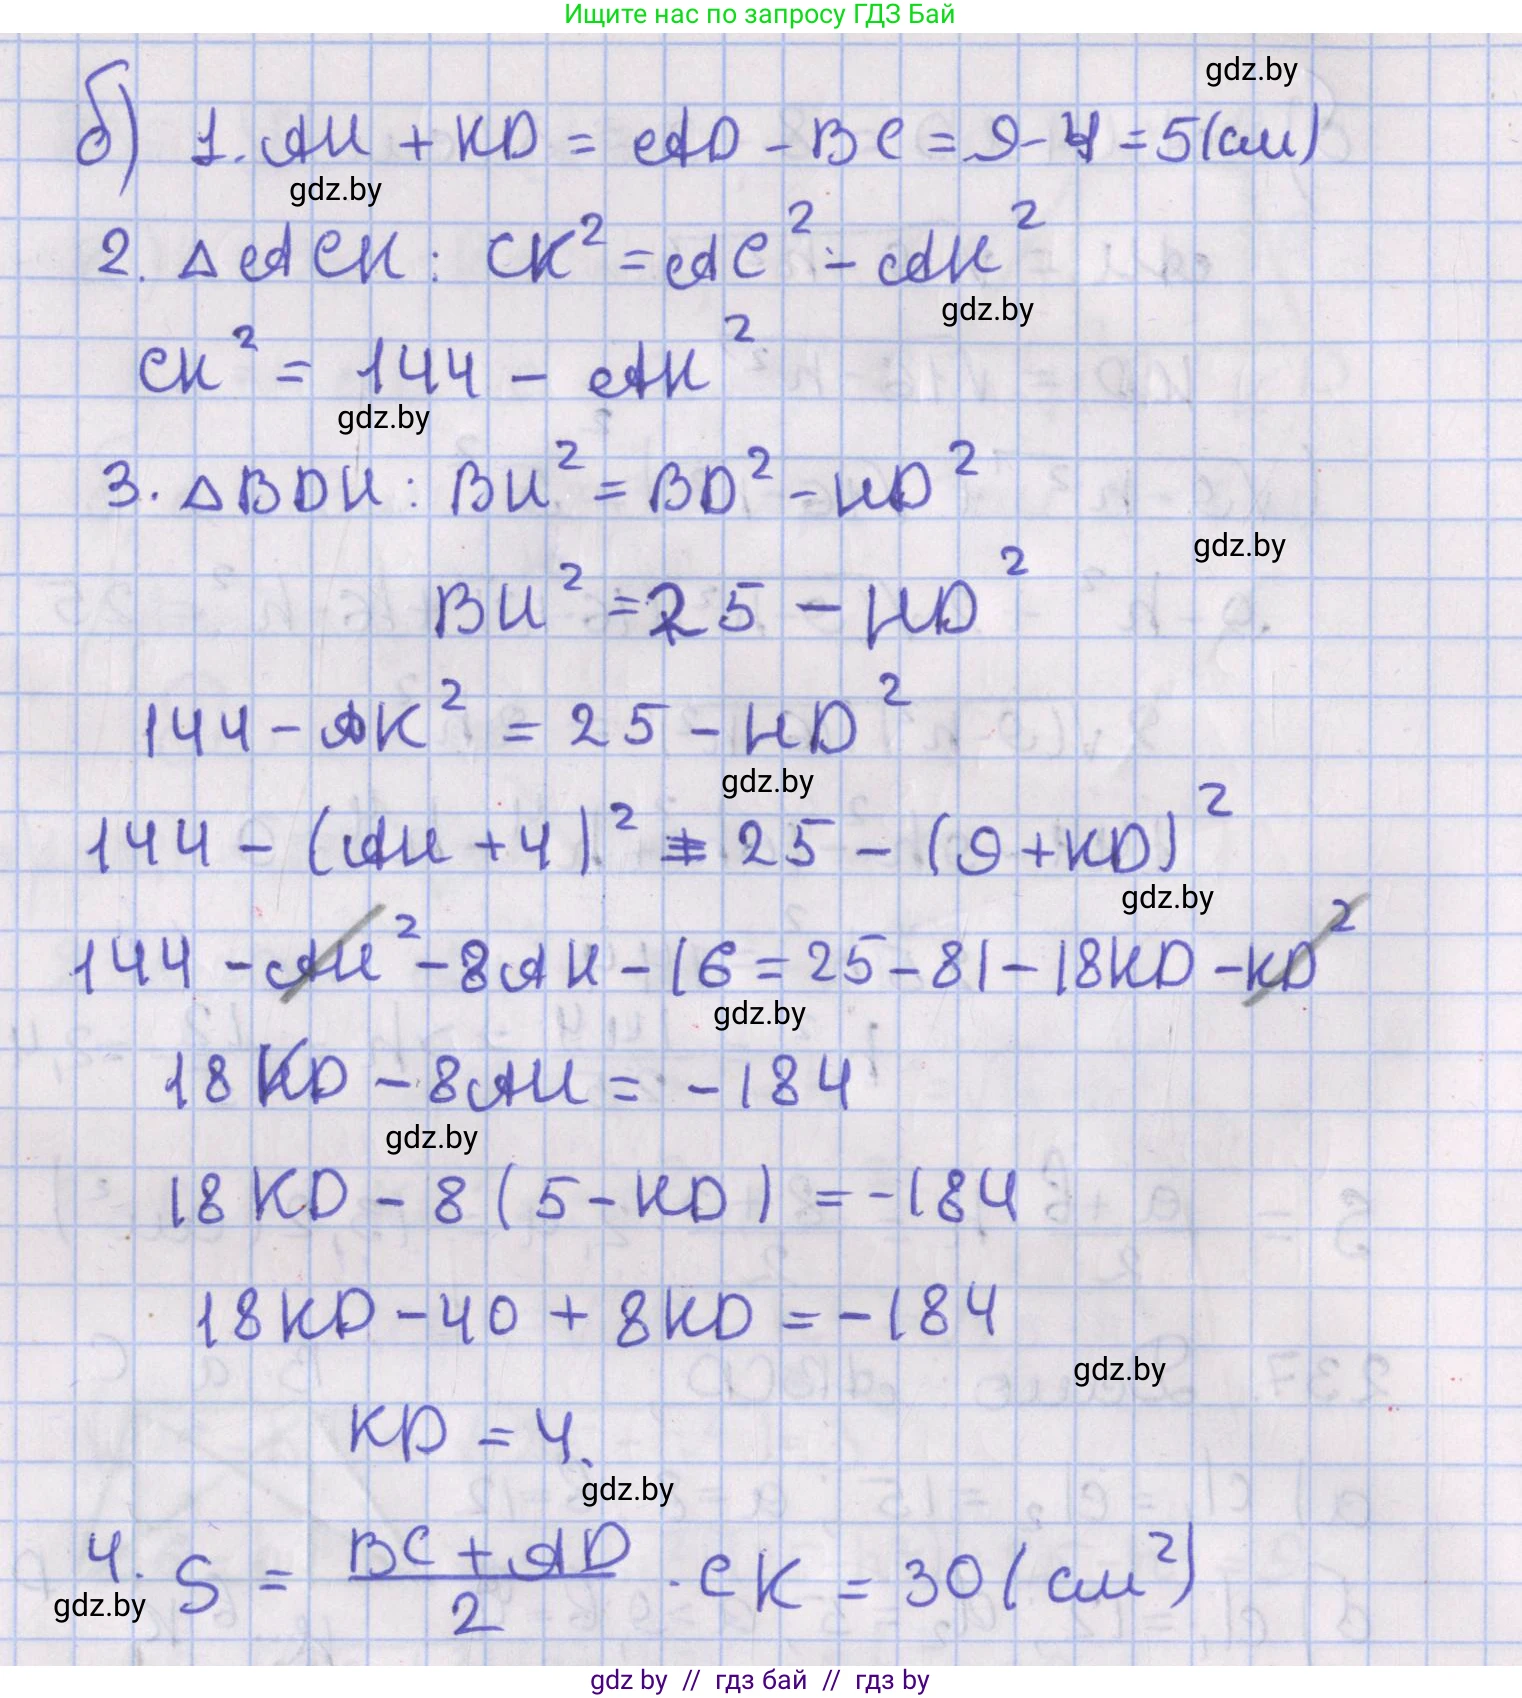 Ищите нас по запросу ГДЗ Бай
gdz.by
б) 1. AH + KD = AD - BC = 9 - 4 = 5 (см)
gdz.by
2. △ ACK : CK² = AC² - AK²
gdz.by
CK² = 144 - AK²
gdz.by
3. △ BDH : BH² = BD² - HD²
gdz.by
BH² = 25 - HD²
144 - AK² = 25 - HD²
gdz.by
144 - (AH + 4)² = 25 - (9 + KD)²
gdz.by
144 - AH² - 8AH - 16 = 25 - 81 - 18KD - KD²
gdz.by
18KD - 8AH = -184
gdz.by
18KD - 8(5 - KD) = -184
18KD - 40 + 8KD = -184
gdz.by
KD = 4.
gdz.by
4. S = (BC + AD)/2 · CK = 30 (см²)
gdz.by
gdz by // гдз бай // гдз by